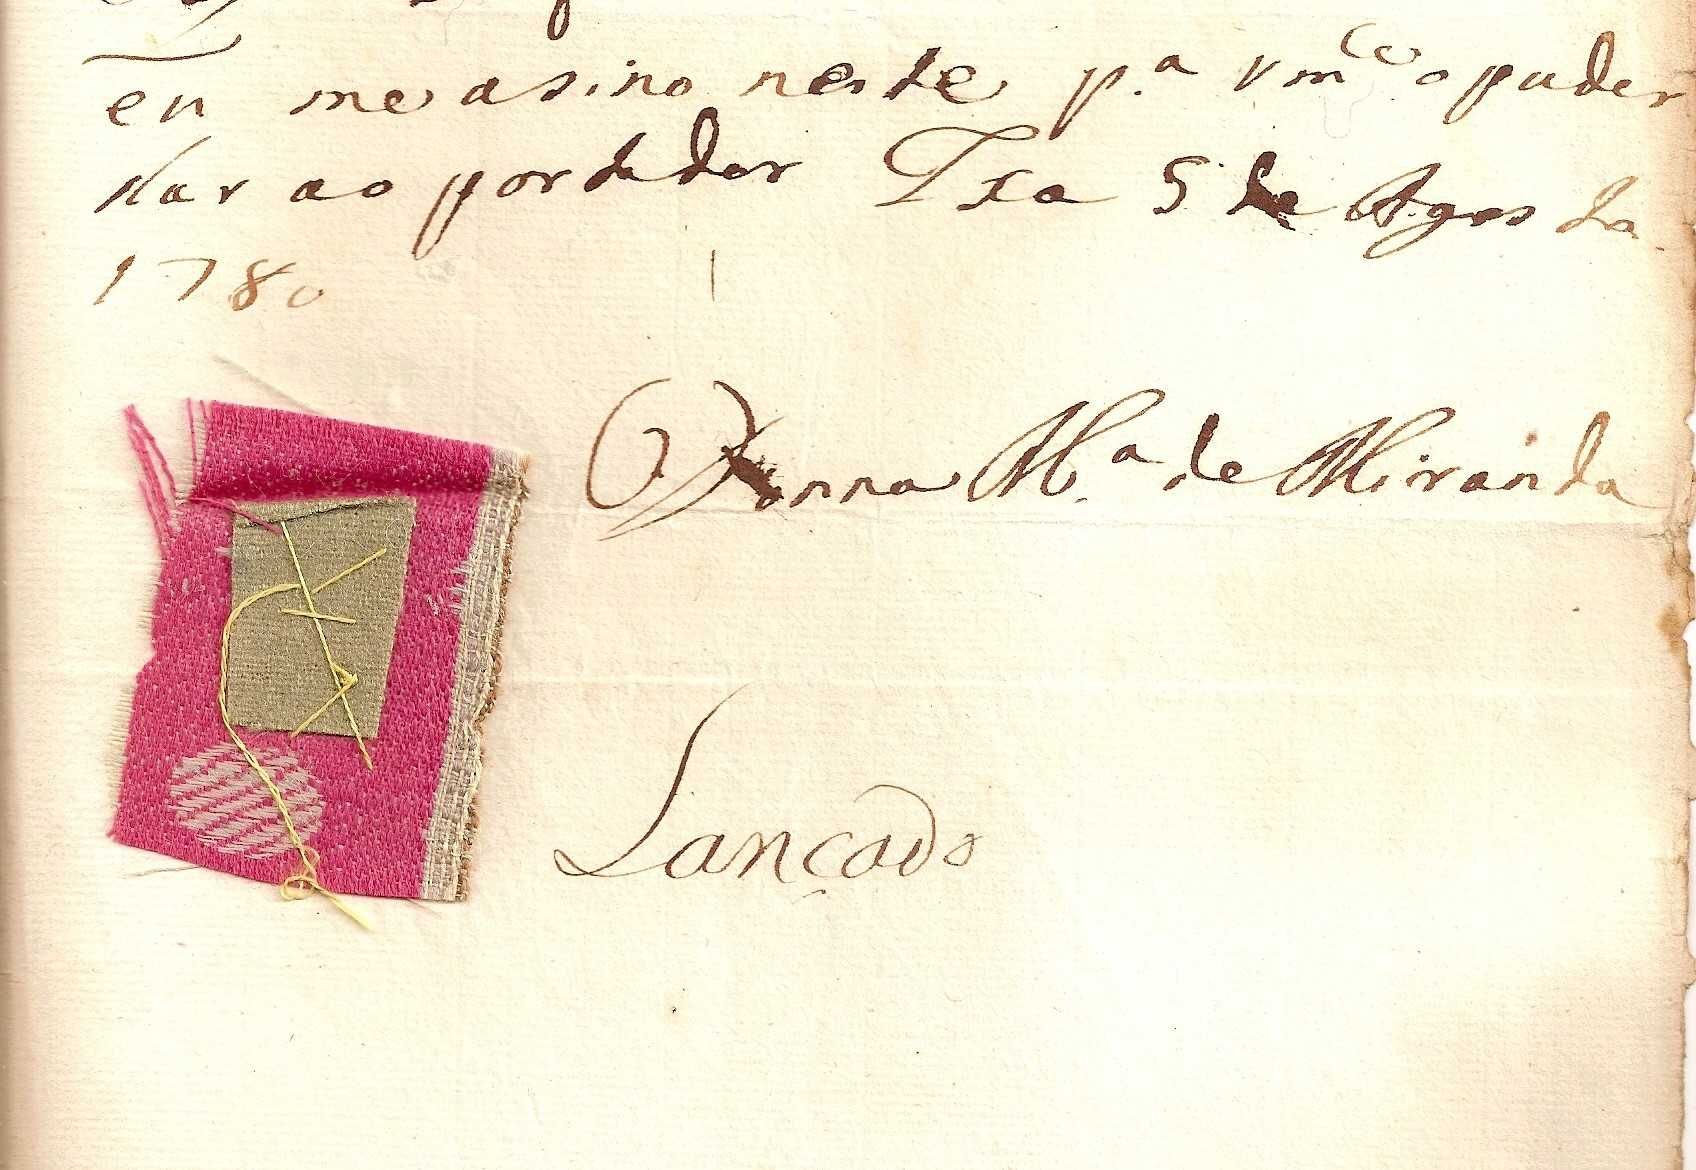 eu me asino neste p.ª Vmce o puder
dar ao portador Lxa 5 de Agosto
1780
Anna M.ª de Miranda
Lançado